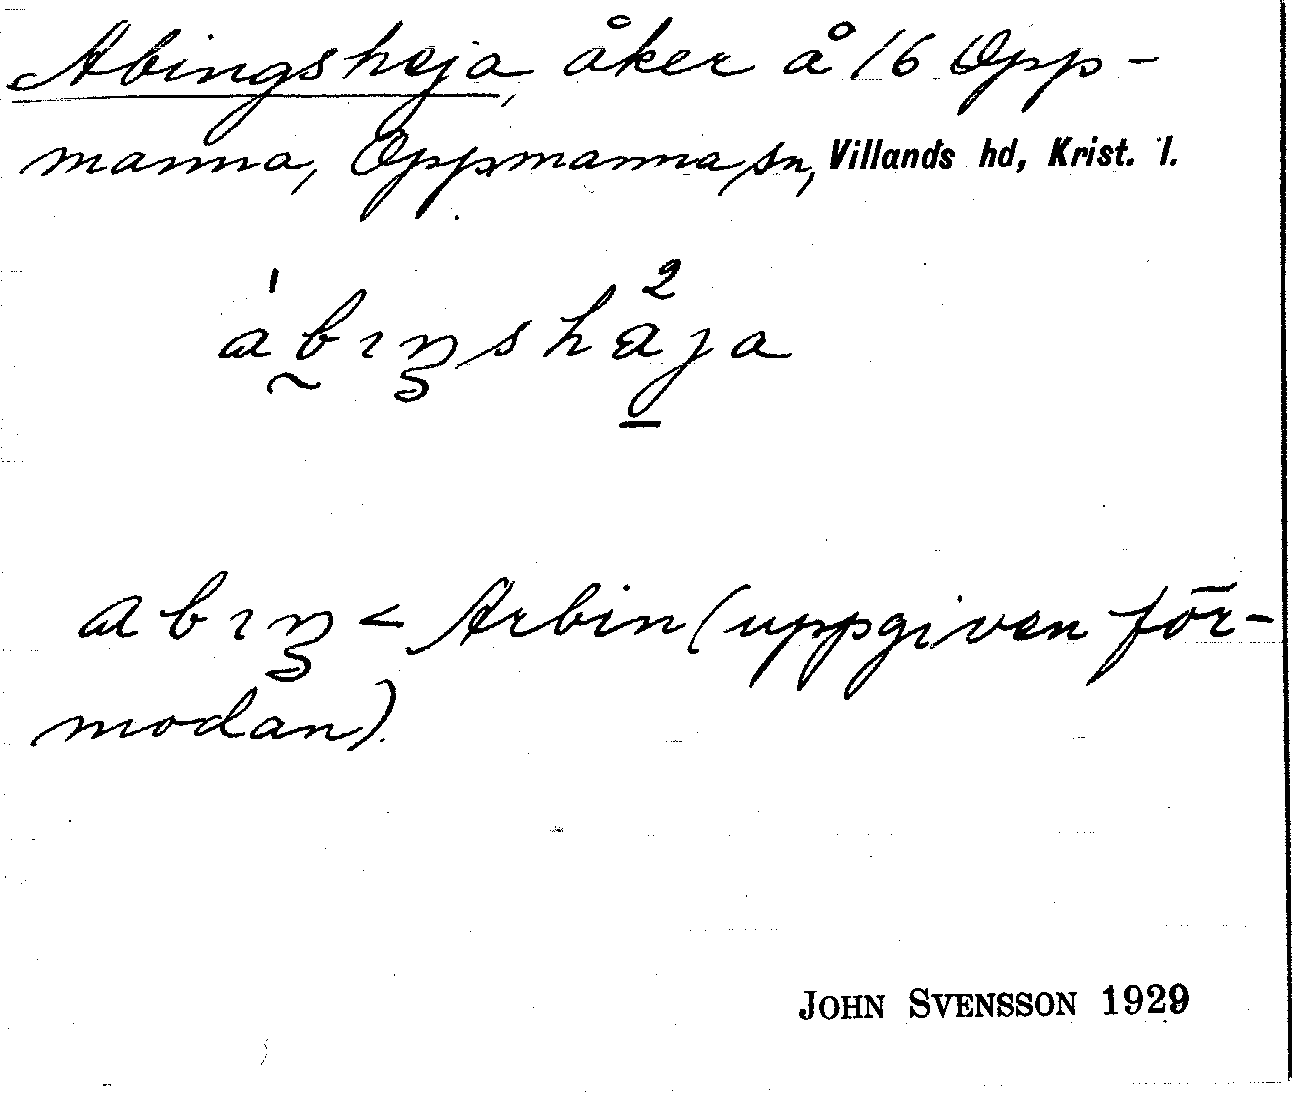 Abingsheja, åker å 16 Opp-
manna, Oppmanna sn, Villands hd, Krist. l.
àbıŋshåja
abıŋ < Arbin (uppgiven för-
modan).
JOHN SVENSSON 1929